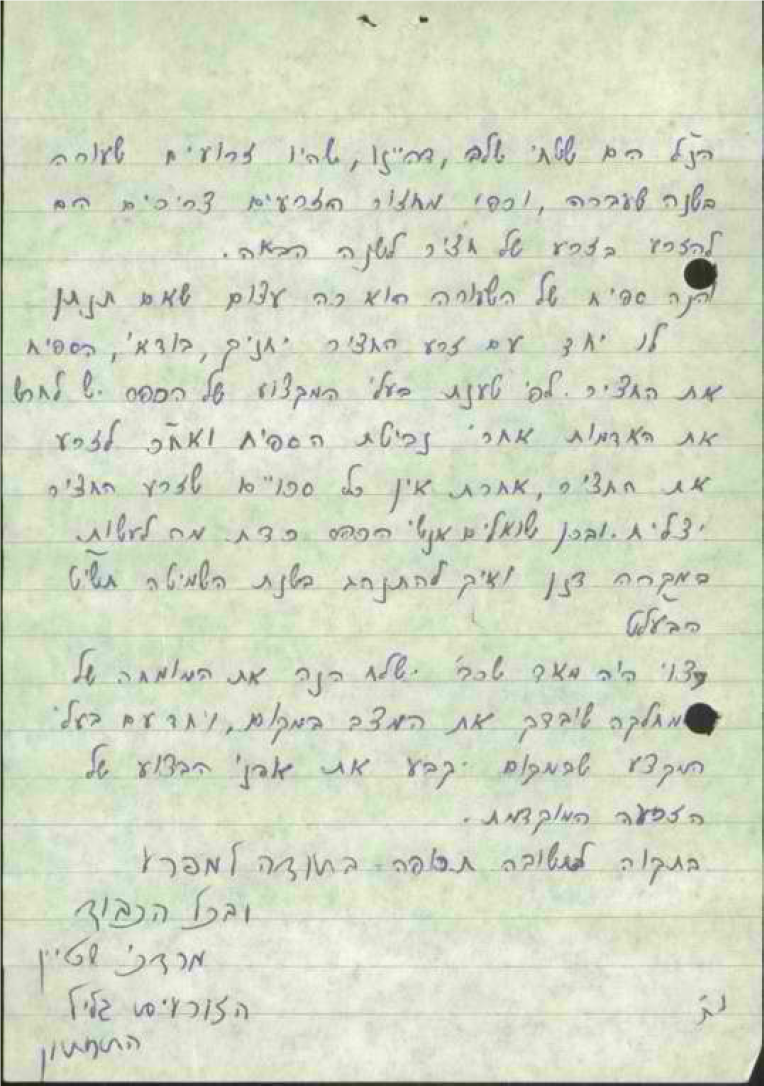 הנ"ל הם שטחי שלב, דהיינו, שהיו זרועים שעורה
בשנה שעברה, וכפי מחזור הזרעים צריכים הם
להזרע בזרע של חציר לשנה הבאה.
והנה ספיח של השעורה הוא כה עצום שאם תנתן
לו יחד עם זרע החציר יחניק, בודאי, הספיח
את החציר. לפי טענת בעלי המקצוע של יש לחרוש
את האדמות אחרי נביטת הספיח ואח"כ לזרע
את החציר, אחרת אין כל סכויים שזרע החציר
יצליח. ובכן שואלים אנשי כדת מה לעשות
במקרה דנן ואיך להתנהג בשנת השמיטה תשי"ט
הבעל"ט
רצוי היה מאד שכב' ישלח הנה את המומחה של
המחלקה שיבדק את המצב במקום, ויחד עם בעלי
המקצע שבמקום יקבע את אפני הבצוע של
הזריעה המוקדמת.
בתקוה לתשובה תכופה בתודה למפרע
ובכל הכבוד
מרדכי שטיין
הזורעים גליל
התחתון